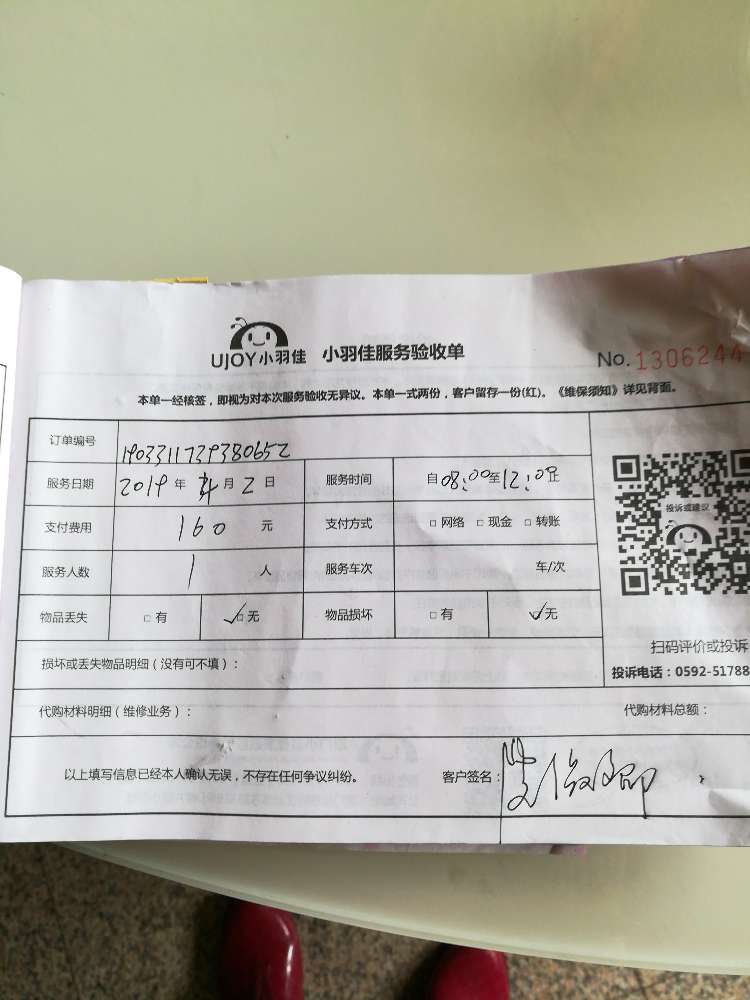 UJOY小羽佳 小羽佳服务验收单
No. 1306244
本单一经核签，即视为对本次服务验收无异议。本单一式两份，客户留存一份(红)。《维保须知》详见背面。
订单编号 1903311739380652
服务日期 2019 年 4 月 2 日 服务时间 自 08:00 至 12:00 止
支付费用 160 元 支付方式 □ 网络 □ 现金 □ 转账
服务人数 1 人 服务车次 车/次
物品丢失 □ 有 ☑无 物品损坏 □ 有 ☑无
投诉或建议
扫码评价或投诉
投诉电话：0592-51788
损坏或丢失物品明细（没有可不填）：
代购材料明细（维修业务）： 代购材料总额：
以上填写信息已经本人确认无误，不存在任何争议纠纷。 客户签名：